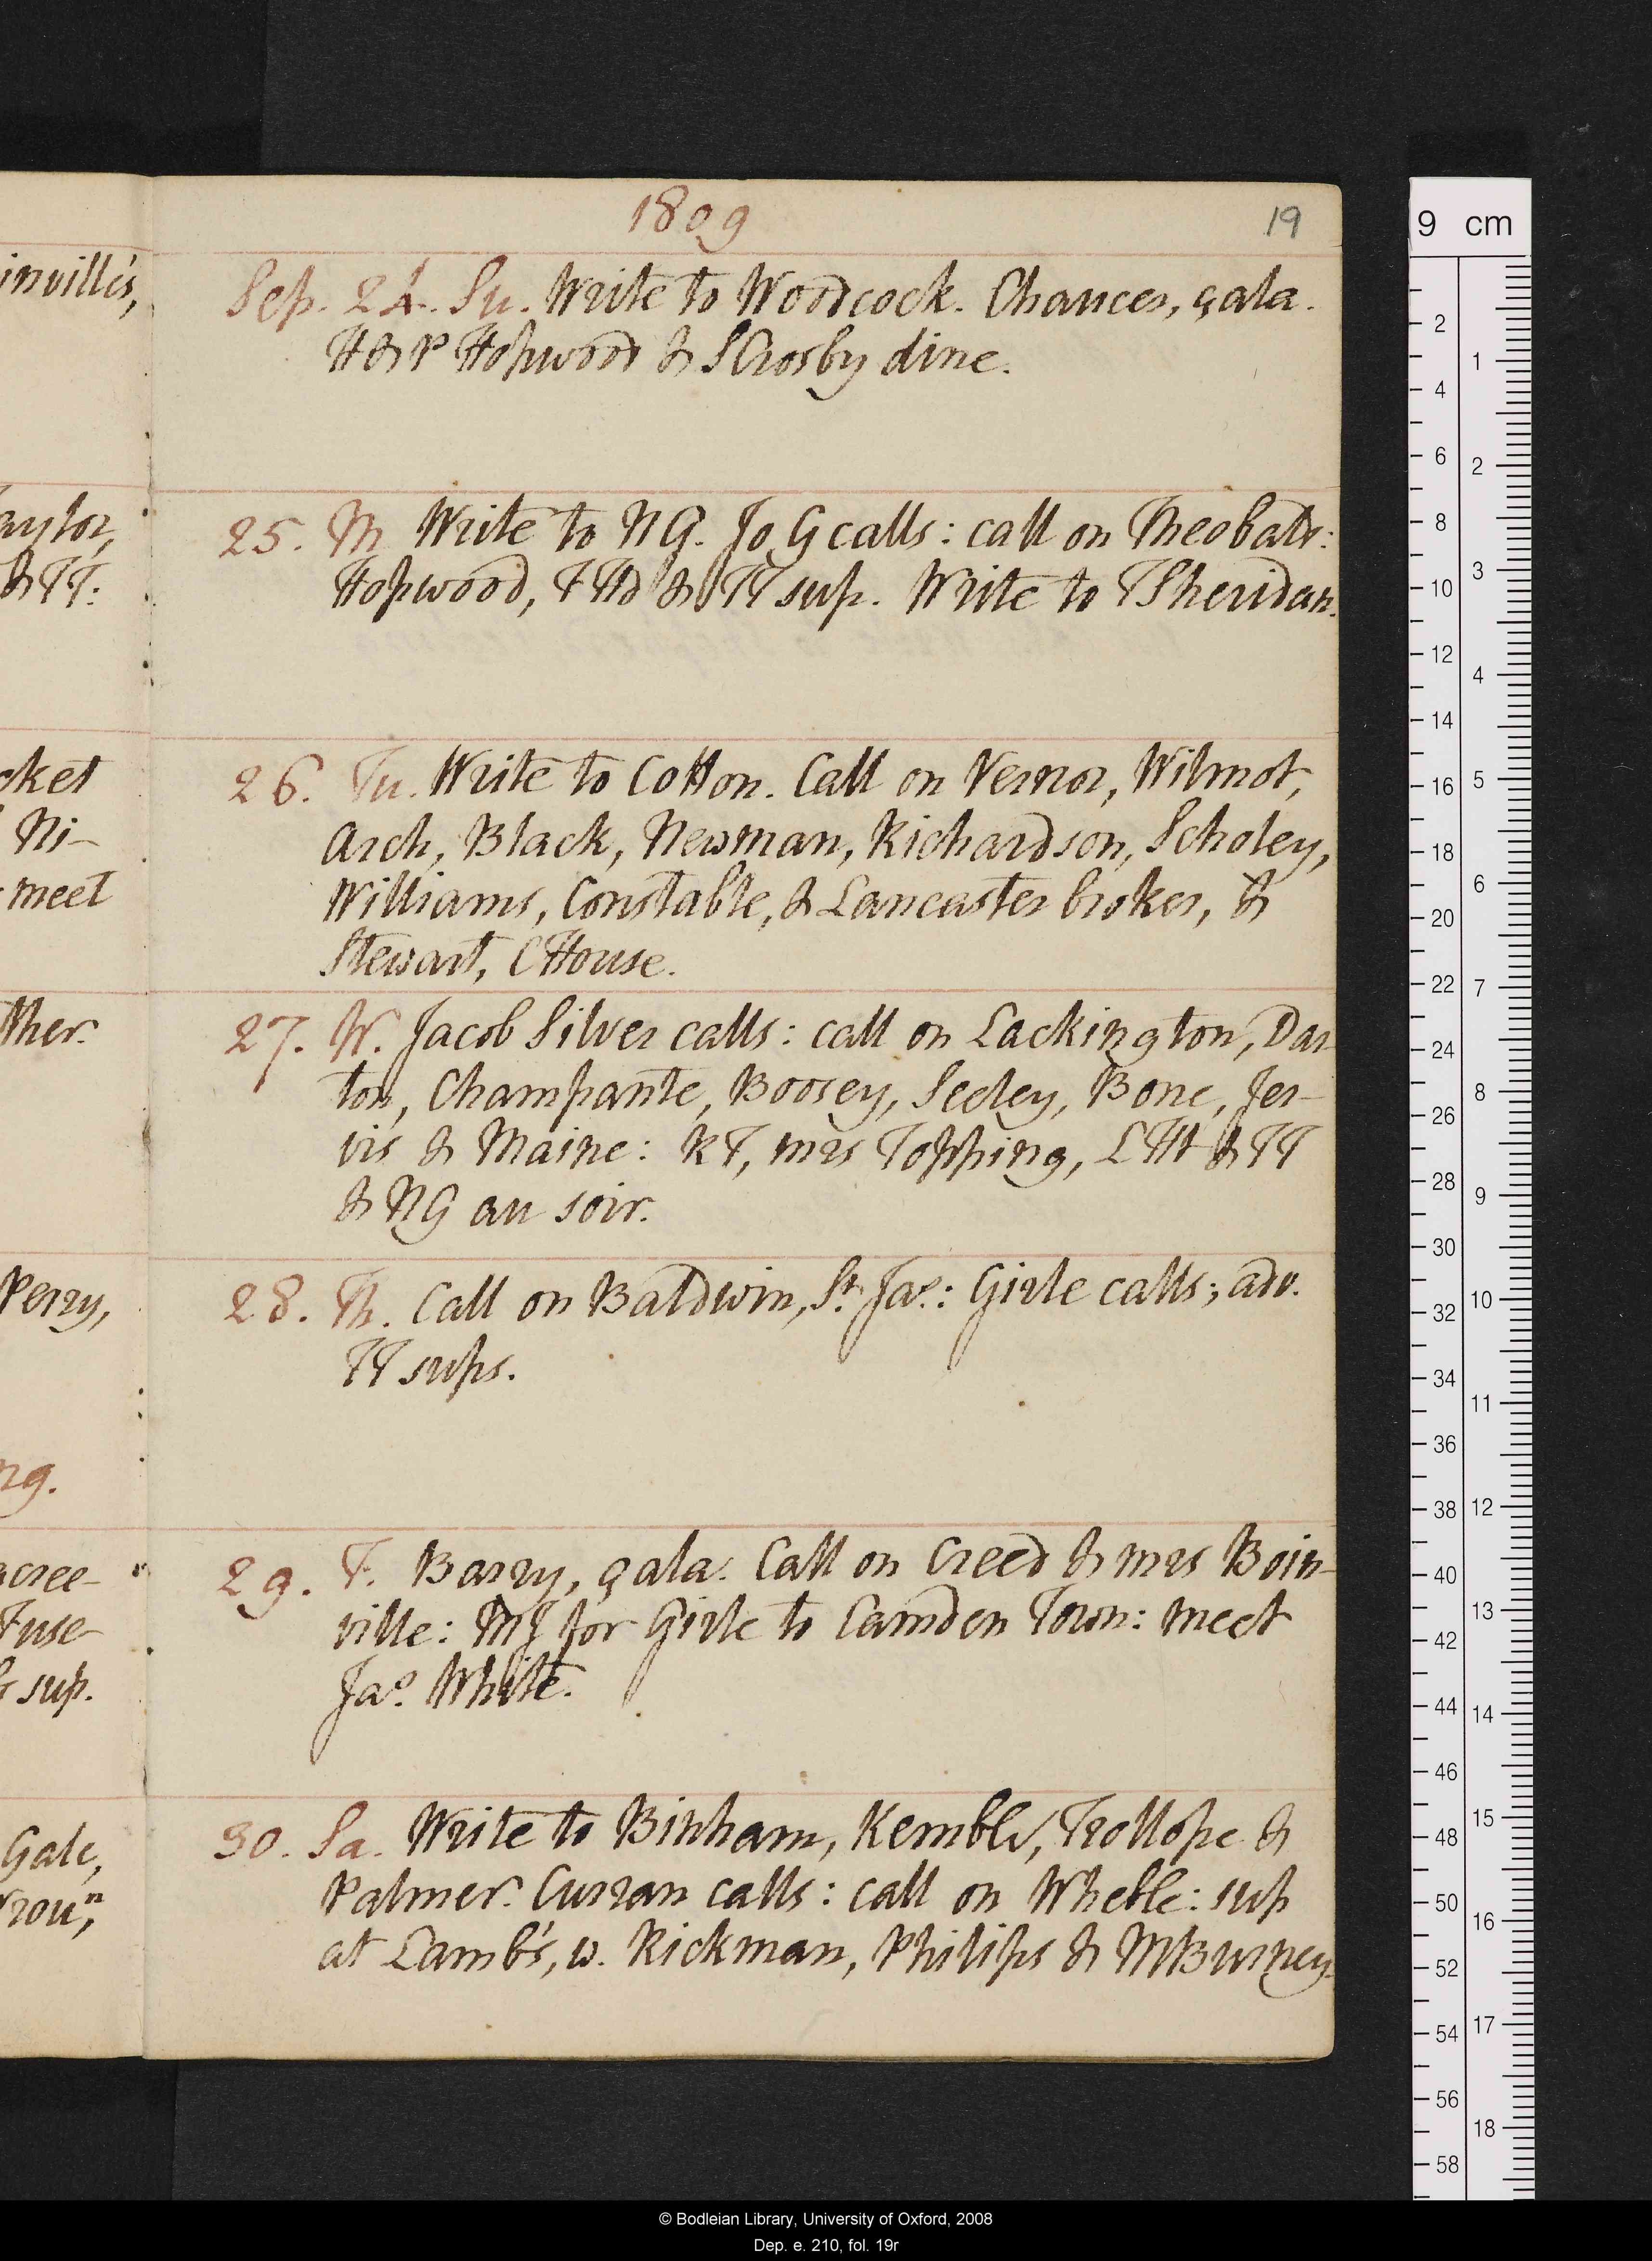 1809
19
Sep. 24. Su. Write to Woodcock. Chances, çala.
H & P Hopwood & S Crosby dine.
25. M Write to NG. Jo G calls: call on Theobald:
Hopwood, & TT sup. Write to T Sheridan.
26. Tu. Write to Cotton. Call on Vernor, Wilmot,
Arch, Black, Newman, Richardson, Scholey,
Williams, Constable, & Lancaster broker, &
Stewart, C House.
27. W. Jacob Silver calls: call on Lackington, Dar-
ton, Champante, Boosey, Seeley, Bone, Jer-
vis & Maine: RT, mrs Topping, LHt & TT
& NG au soir.
28. Th. Call on Baldwin, St Jas: Girle calls; adv.
TT sups.
29. F. Barry, çala. Call on Creed & mrs Boin-
ville: MJ for Girle to Camden Town: meet
Jas White.
30. Sa. Write to Binham, Kemble, Trollope &
Palmer. Curran calls: call on Wheble: sup
at Lamb's, w. Rickman, Philips & MBurney.
inville's,
aylor,
& TT.
cket
Ni-
meet
ther.
Perry,
ng.
acree-
Fuse-
& sup.
Gale,
9 cm
2 4 6 8 10 12 14 16 18 20 22 24 26 28 30 32 34 36 38 40 42 44 46 48 50 52 54 56 58
1 2 3 4 5 6 7 8 9 10 11 12 13 14 15 16 17 18
© Bodleian Library, University of Oxford, 2008
Dep. e. 210, fol. 19r